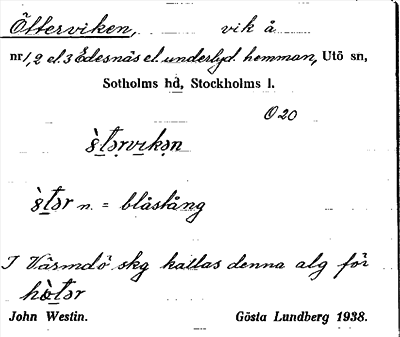 Ötterviken, vik å
nr 1, 2 el. 3 Edesnäs el. underlyd. hemman, Utö sn,
Sotholms hd, Stockholms l.
Ö 20
n. = blåstång
I Värmdö skg kallas denna alg för
John Westin. Gösta Lundberg 1938.